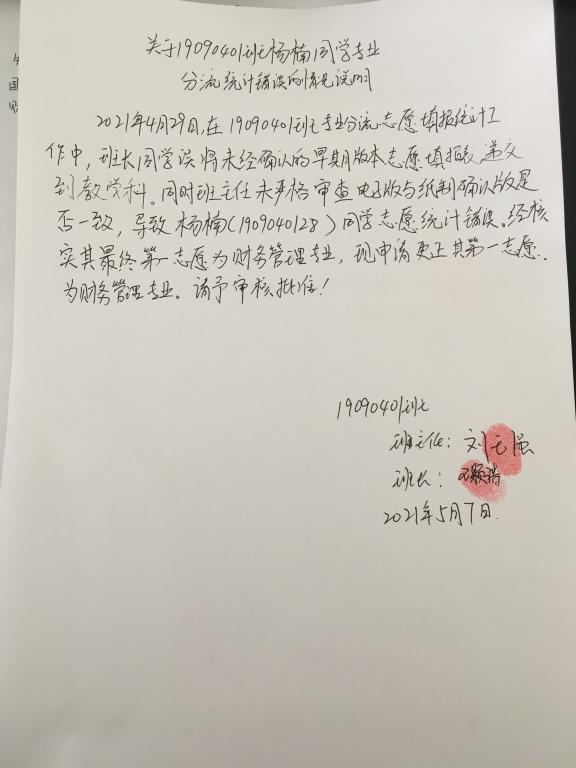 关于1909401班杨楠同学专业
分流统计错误的情况说明
2021年4月29日,在1909401班专业分流志愿填报统计工
作中,班长同学误将未经确认的早期版本志愿填报表递交
到教学科。同时班主任未严格审查电子版与纸制确认版是
否一致,导致杨楠(190940128)同学志愿统计错误。经核
实其最终第一志愿为财务管理专业,现申请更正其第一志愿
为财务管理专业。请予审核批准!
1909401班
班主任:刘
班长:
2021年5月7日.